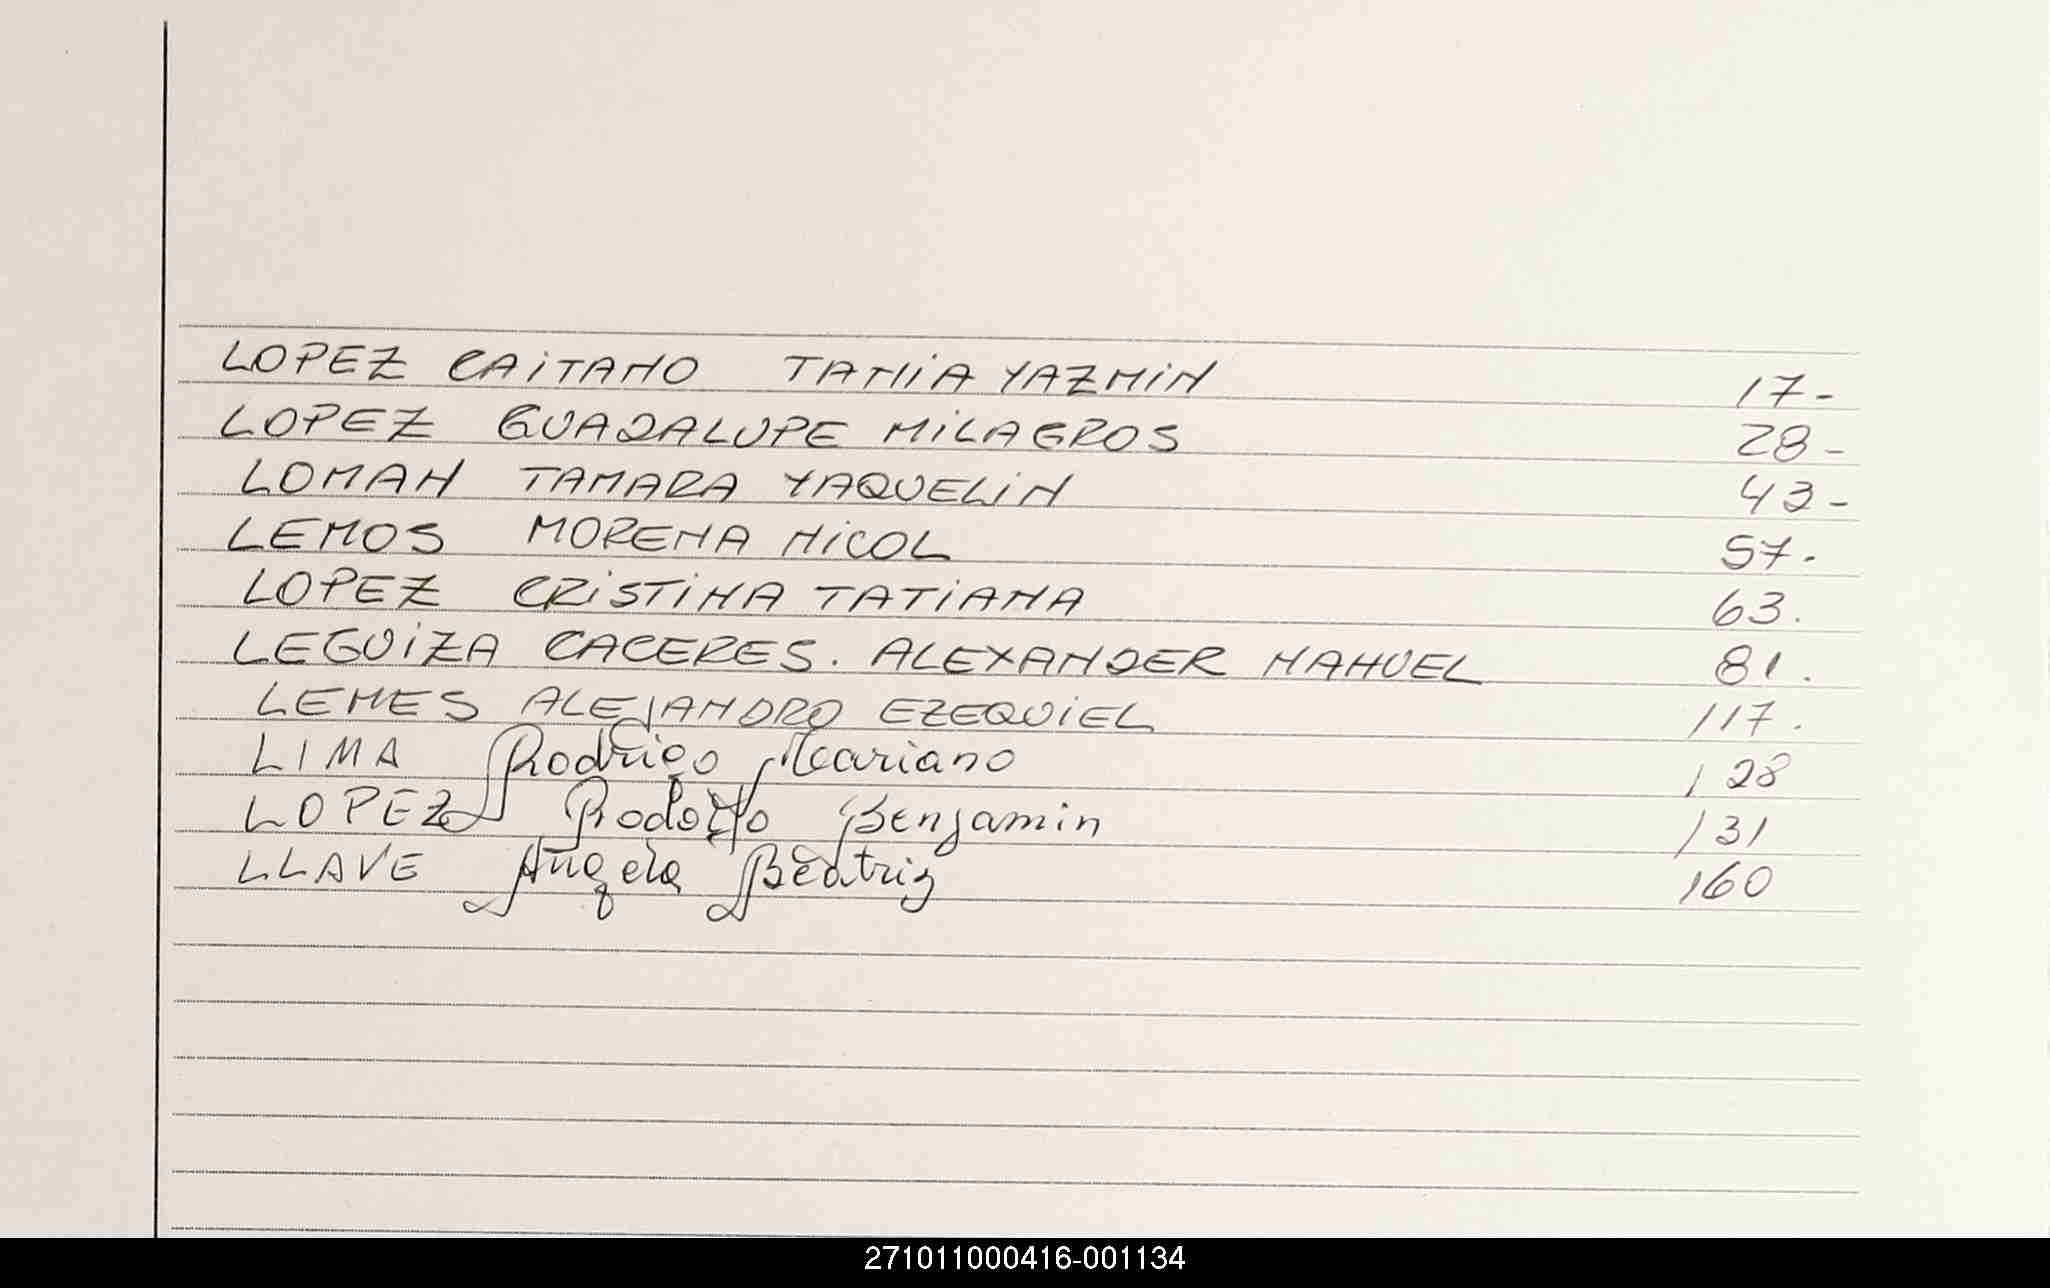 LOPEZ CAiTANO TANiA YAZMiN 17-
LOPEZ GUADALUPE MiLAGROS 28-
LOMAN TAMARA YAQUELiN 43-
LEMOS MORENA NiCOL 57.
LOPEZ CRiSTiNA TATiANA 63.
LEGUiZA CACERES. ALEXANDER NAHUEL 81.
LEMES ALEJANDRO EZEQUiEL 117.
LIMA Rodrigo Mariano 128
LOPEZ Rodolfo Benjamin 131
LLAVE Angela Beatriz 160
271011000416-001134